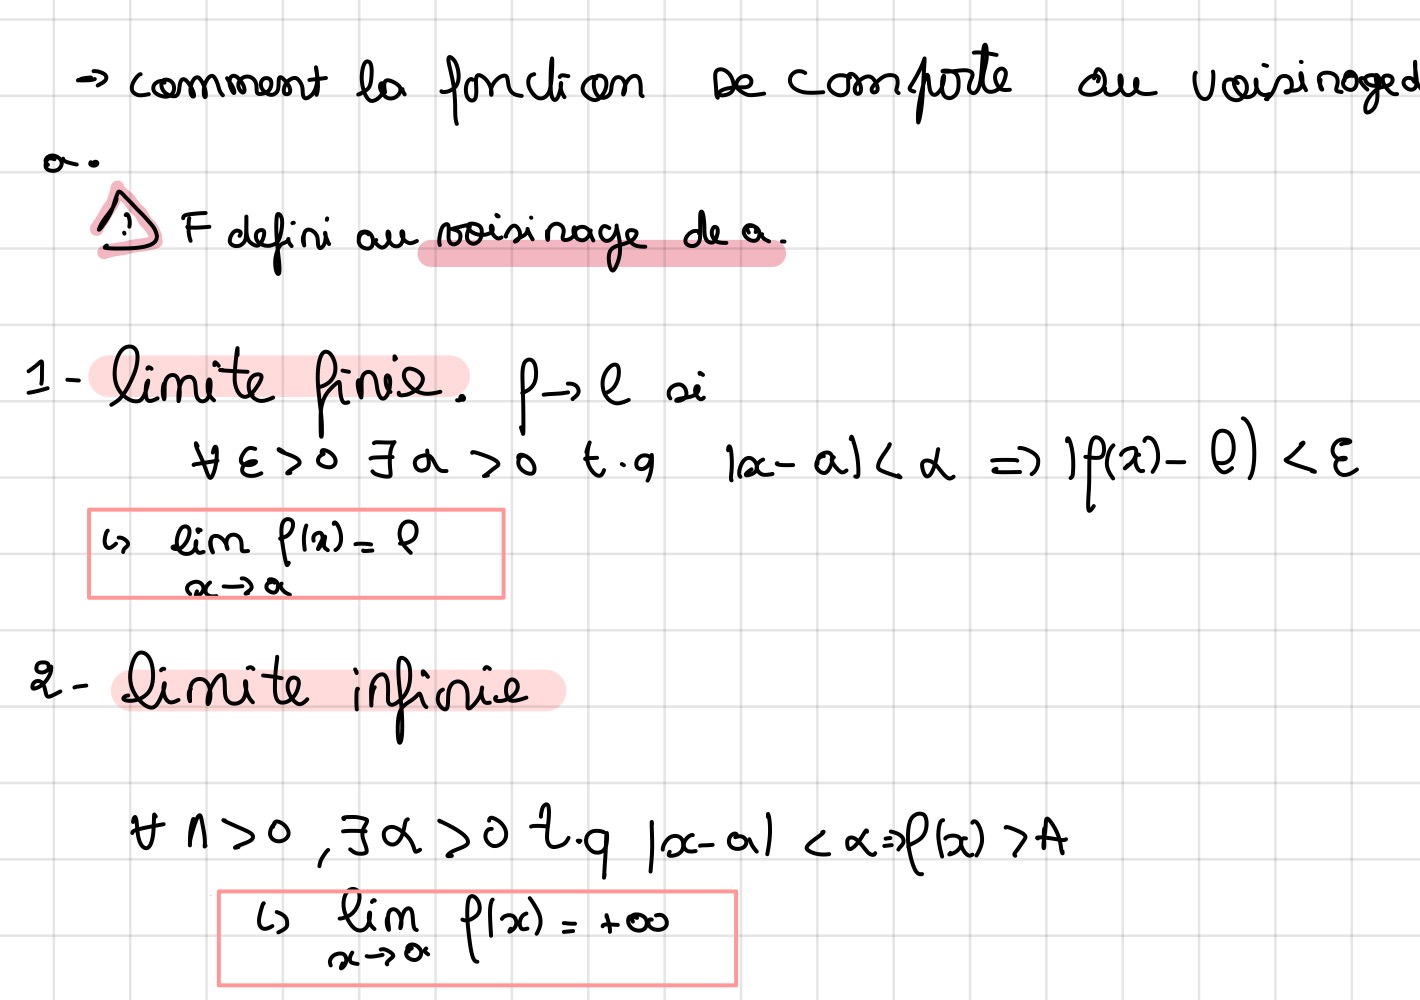 → comment la fonction se comporte au voisinage d
a.
⚠ F defini au voisinage de a.
1- limite finie. f→ℓ si
∀ ε > 0 ∃ α > 0 t.q |x-a| < α => |f(x)-ℓ| < ε
↳ lim f(x) = ℓ
x→a
2- limite infinie
∀ A > 0, ∃ α > 0 t.q |x-a| < α => f(x) > A
↳ lim f(x) = +∞
x→a